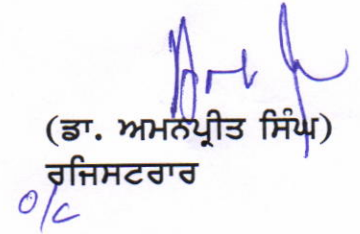 (ਡਾ. ਅਮਨਪ੍ਰੀਤ ਸਿੰਘ)
ਰਜਿਸਟਰਾਰ
O/C